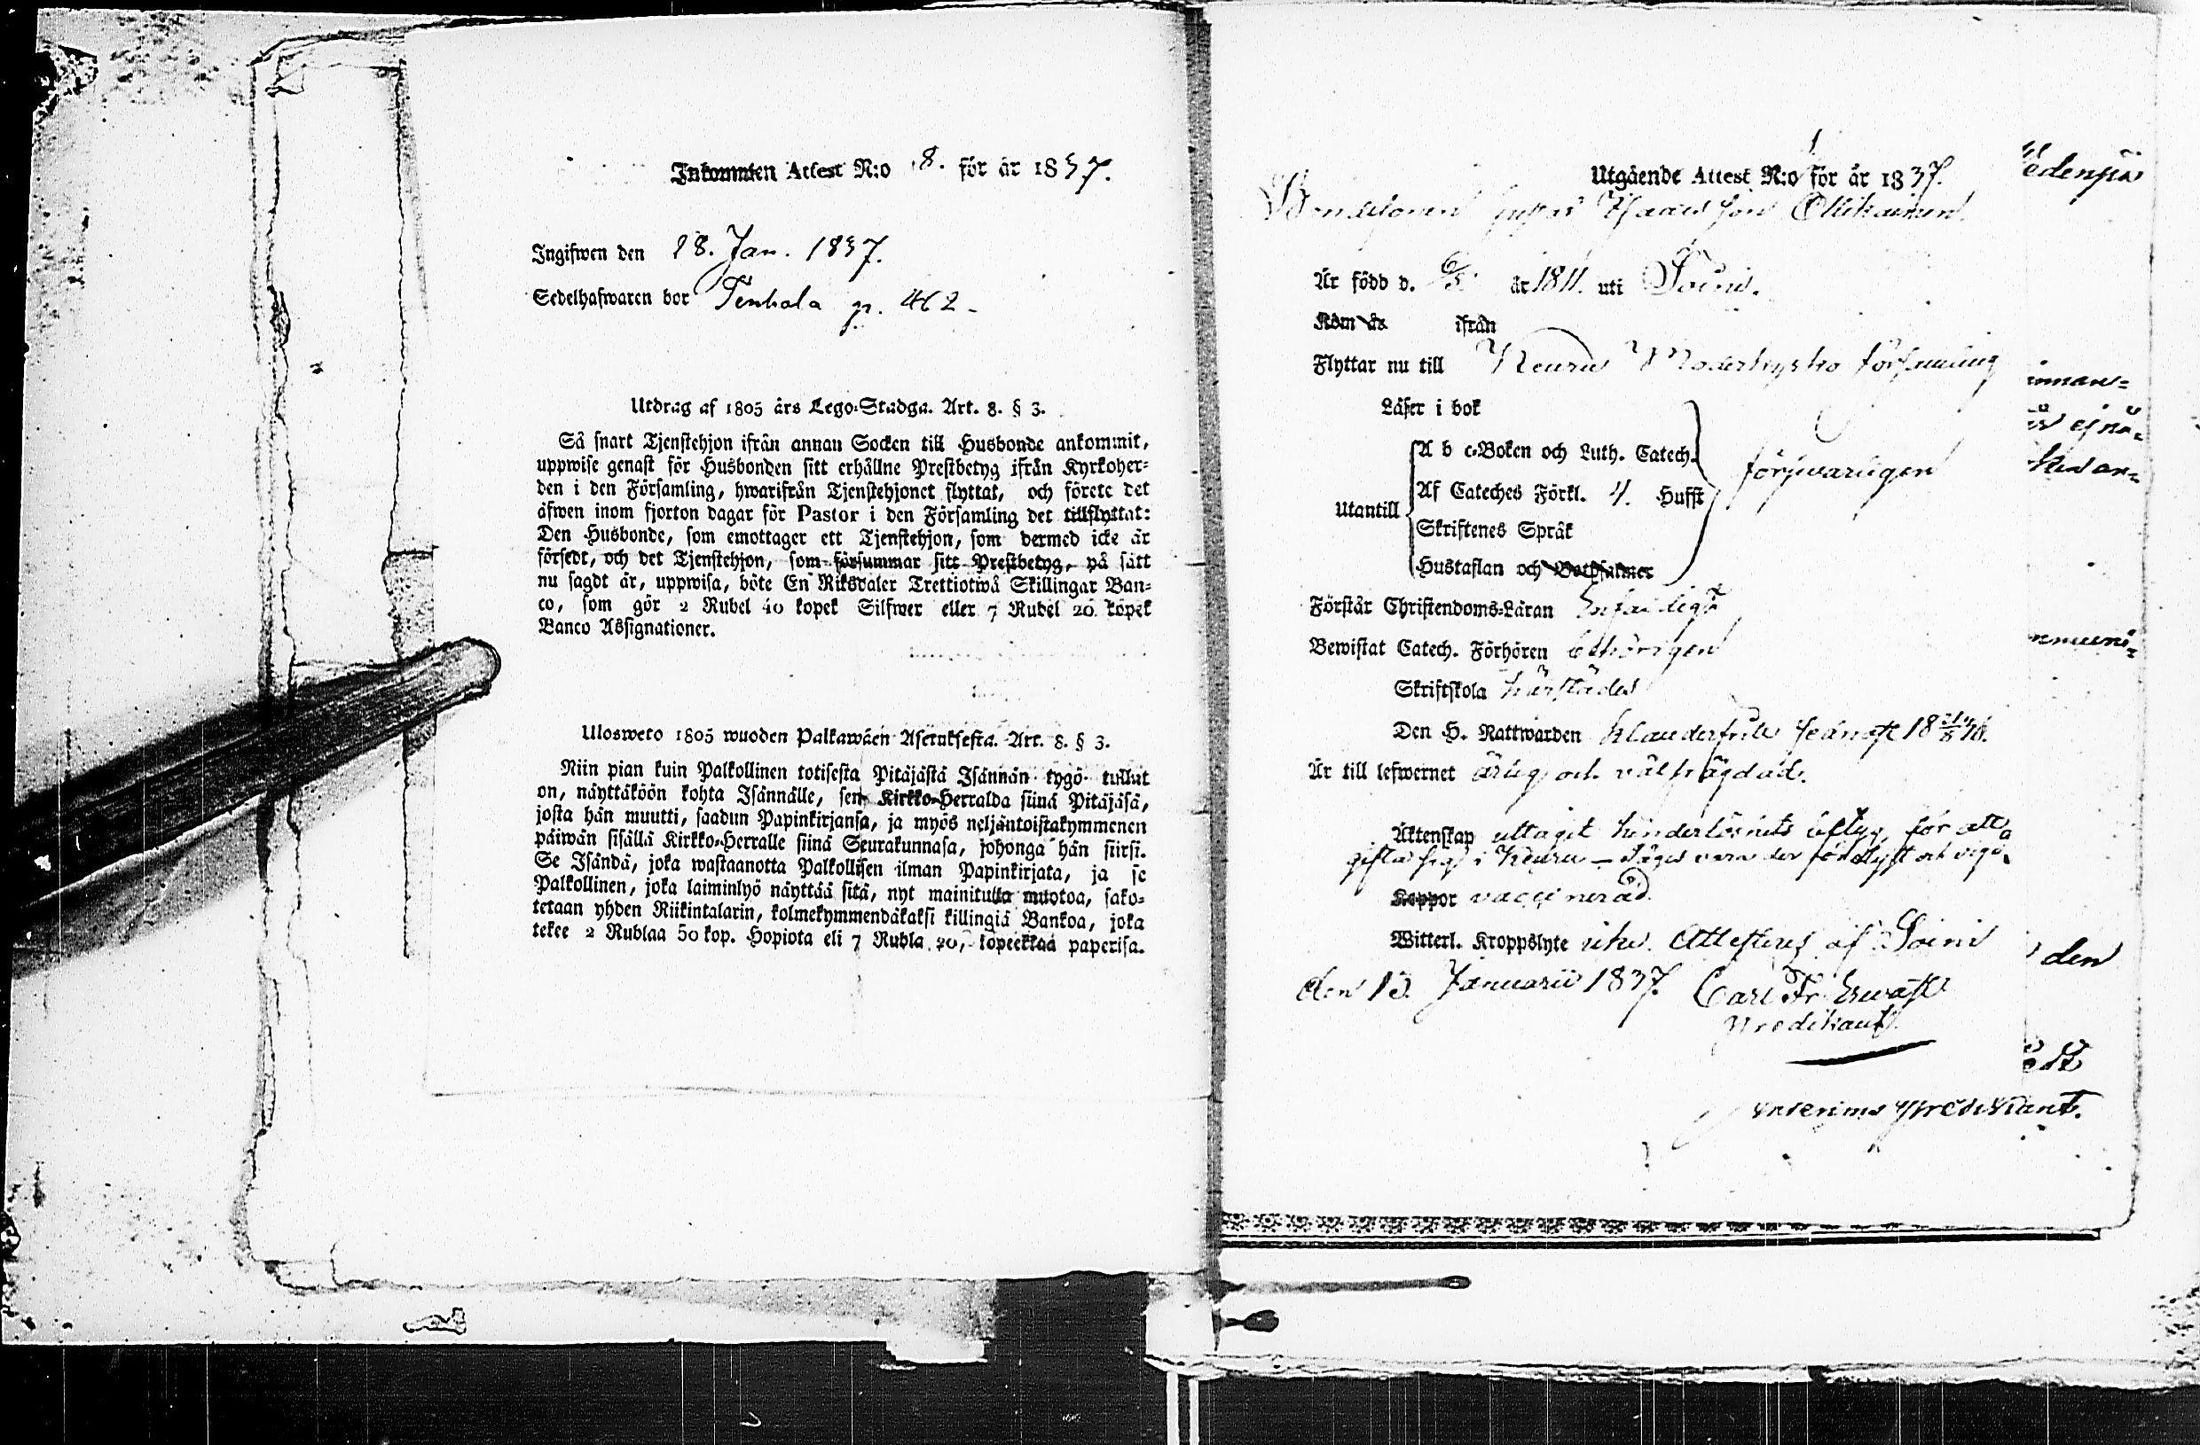 Inkommen Attest N:o 8. för år 1837.
Ingifwen den 28. Jan. 1837.
Sedelhafwaren bor Tenhola p. 462.
Utdrag af 1805 års Lego-Stadga. Art. 8. § 3.
Så snart Tjenstehjon ifrån annan Socken till Husbonde ankommit,
uppwise genast för Husbonden sitt erhållne Prestbetyg ifrån Kyrkoher-
den i den Församling, hwarifrån Tjenstehjonet flyttat, och förete det
äfwen inom fjorton dagar för Pastor i den Församling det tillflyttat:
Den Husbonde, som emottager ett Tjenstehjon, som dermed icke är
försedt, och det Tjenstehjon, som försummar sitt Prestbetyg, på sätt
nu sagdt är, uppwisa, böte En Riksdaler Trettiotwå Skillingar Ban-
co, som gör 2 Rubel 40 kopek Silfwer eller 7 Rubel 20 kopek
Banco Assignationer.
Ulosweto 1805 wuoden Palkawäen Asetuksesta. Art. 8. § 3.
Niin pian kuin Palkollinen totisesta Pitäjästä Isännän tygö tullut
on, näyttäköön kohta Isännälle, sen Kirkko-Herralda siinä Pitäjäsä,
josta hän muutti, saadun Papinkirjansa, ja myös neljäntoistakymmenen
päiwän sisällä Kirkko-Herralle siinä Seurakunnasa, johonga hän siirsi.
Se Isändä, joka wastaanotta Palkollisen ilman Papinkirjata, ja se
Palkollinen, joka laiminlyö näyttää sitä, nyt mainitulla muotoa, sako-
tetaan yhden Riikintalarin, kolmekymmendäkaksi killingiä Bankoa, joka
tekee 2 Rublaa 50 kop. Hopiota eli 7 Rubla 20, kopeekkaa paperisa.
Utgående Attest N:o 1 för år 1837.
Bondesonen
Är född d. 6/5 år 1811. uti Soini.
Kom år ifrån
Flyttar nu till Keuru Moderkyrko församling
Läser i bok
Utantill
A b c-Boken och Luth. Catech.
försvarligen
Af Cateches Förkl. Hufst
Skriftenes Språk
Hustaflan och Botpsalmer
Förstår Christendoms-Läran enfaldigt
Bewistat Catech. Förhören behörigen
Skriftskola härstädes
Den H. Nattwarden klanderfritt senast 18
Är till lefwernet ärlig och välfrägdad.
Äktenskap uttagit hinderlöshets betyg för att
gifta sig i Keuru
Koppor vaccinerad
Witterl. Kroppslyte icke. Attesteras af Soini
den 13. Januarii 1837. Carl Fr.
Predikant.
den
Interims Predikant.